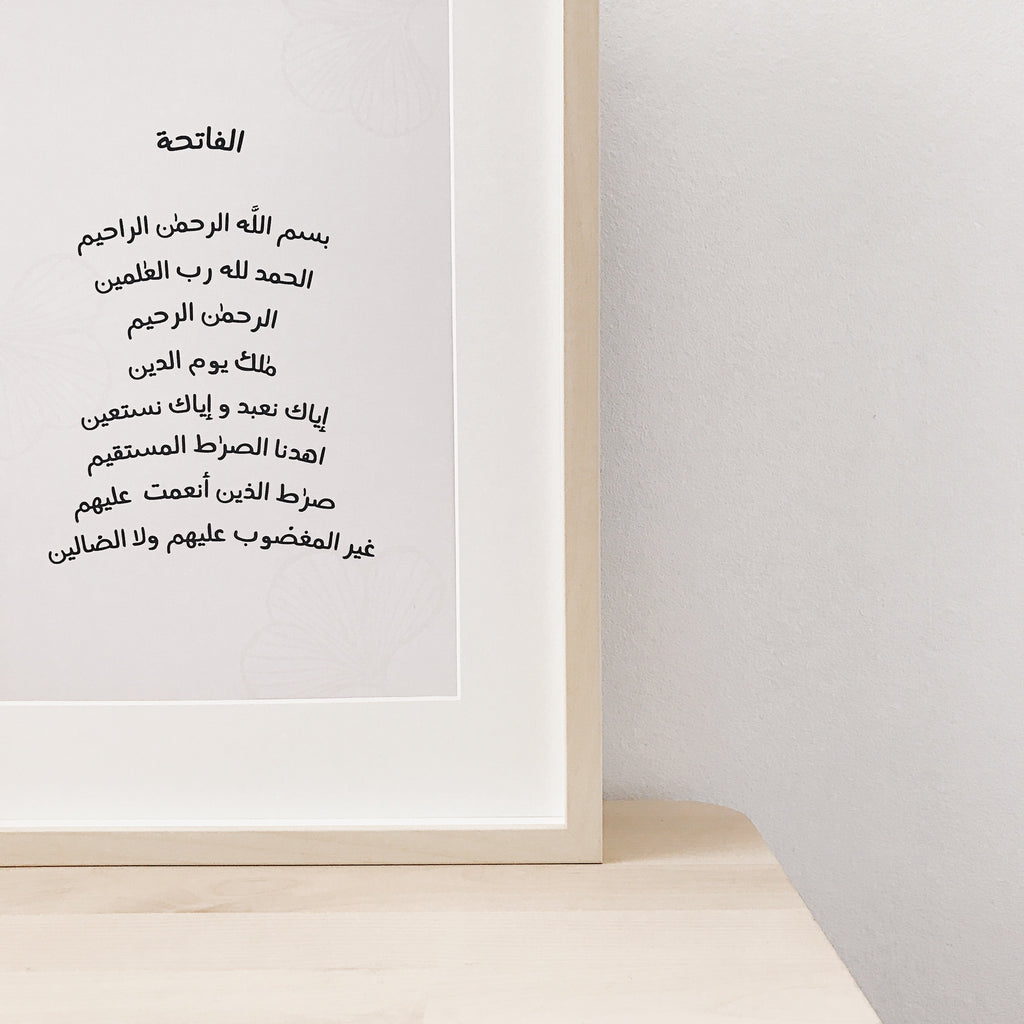 الفاتحة
بسم اللَّه الرحمٰن الراحيم
الحمد لله رب العٰلمين
الرحمٰن الرحيم
مٰلك يوم الدين
إياك نعبد و إياك نستعين
اهدنا الصرٰط المستقيم
صرٰط الذين أنعمت عليهم
غير المغضوب عليهم ولا الضالين